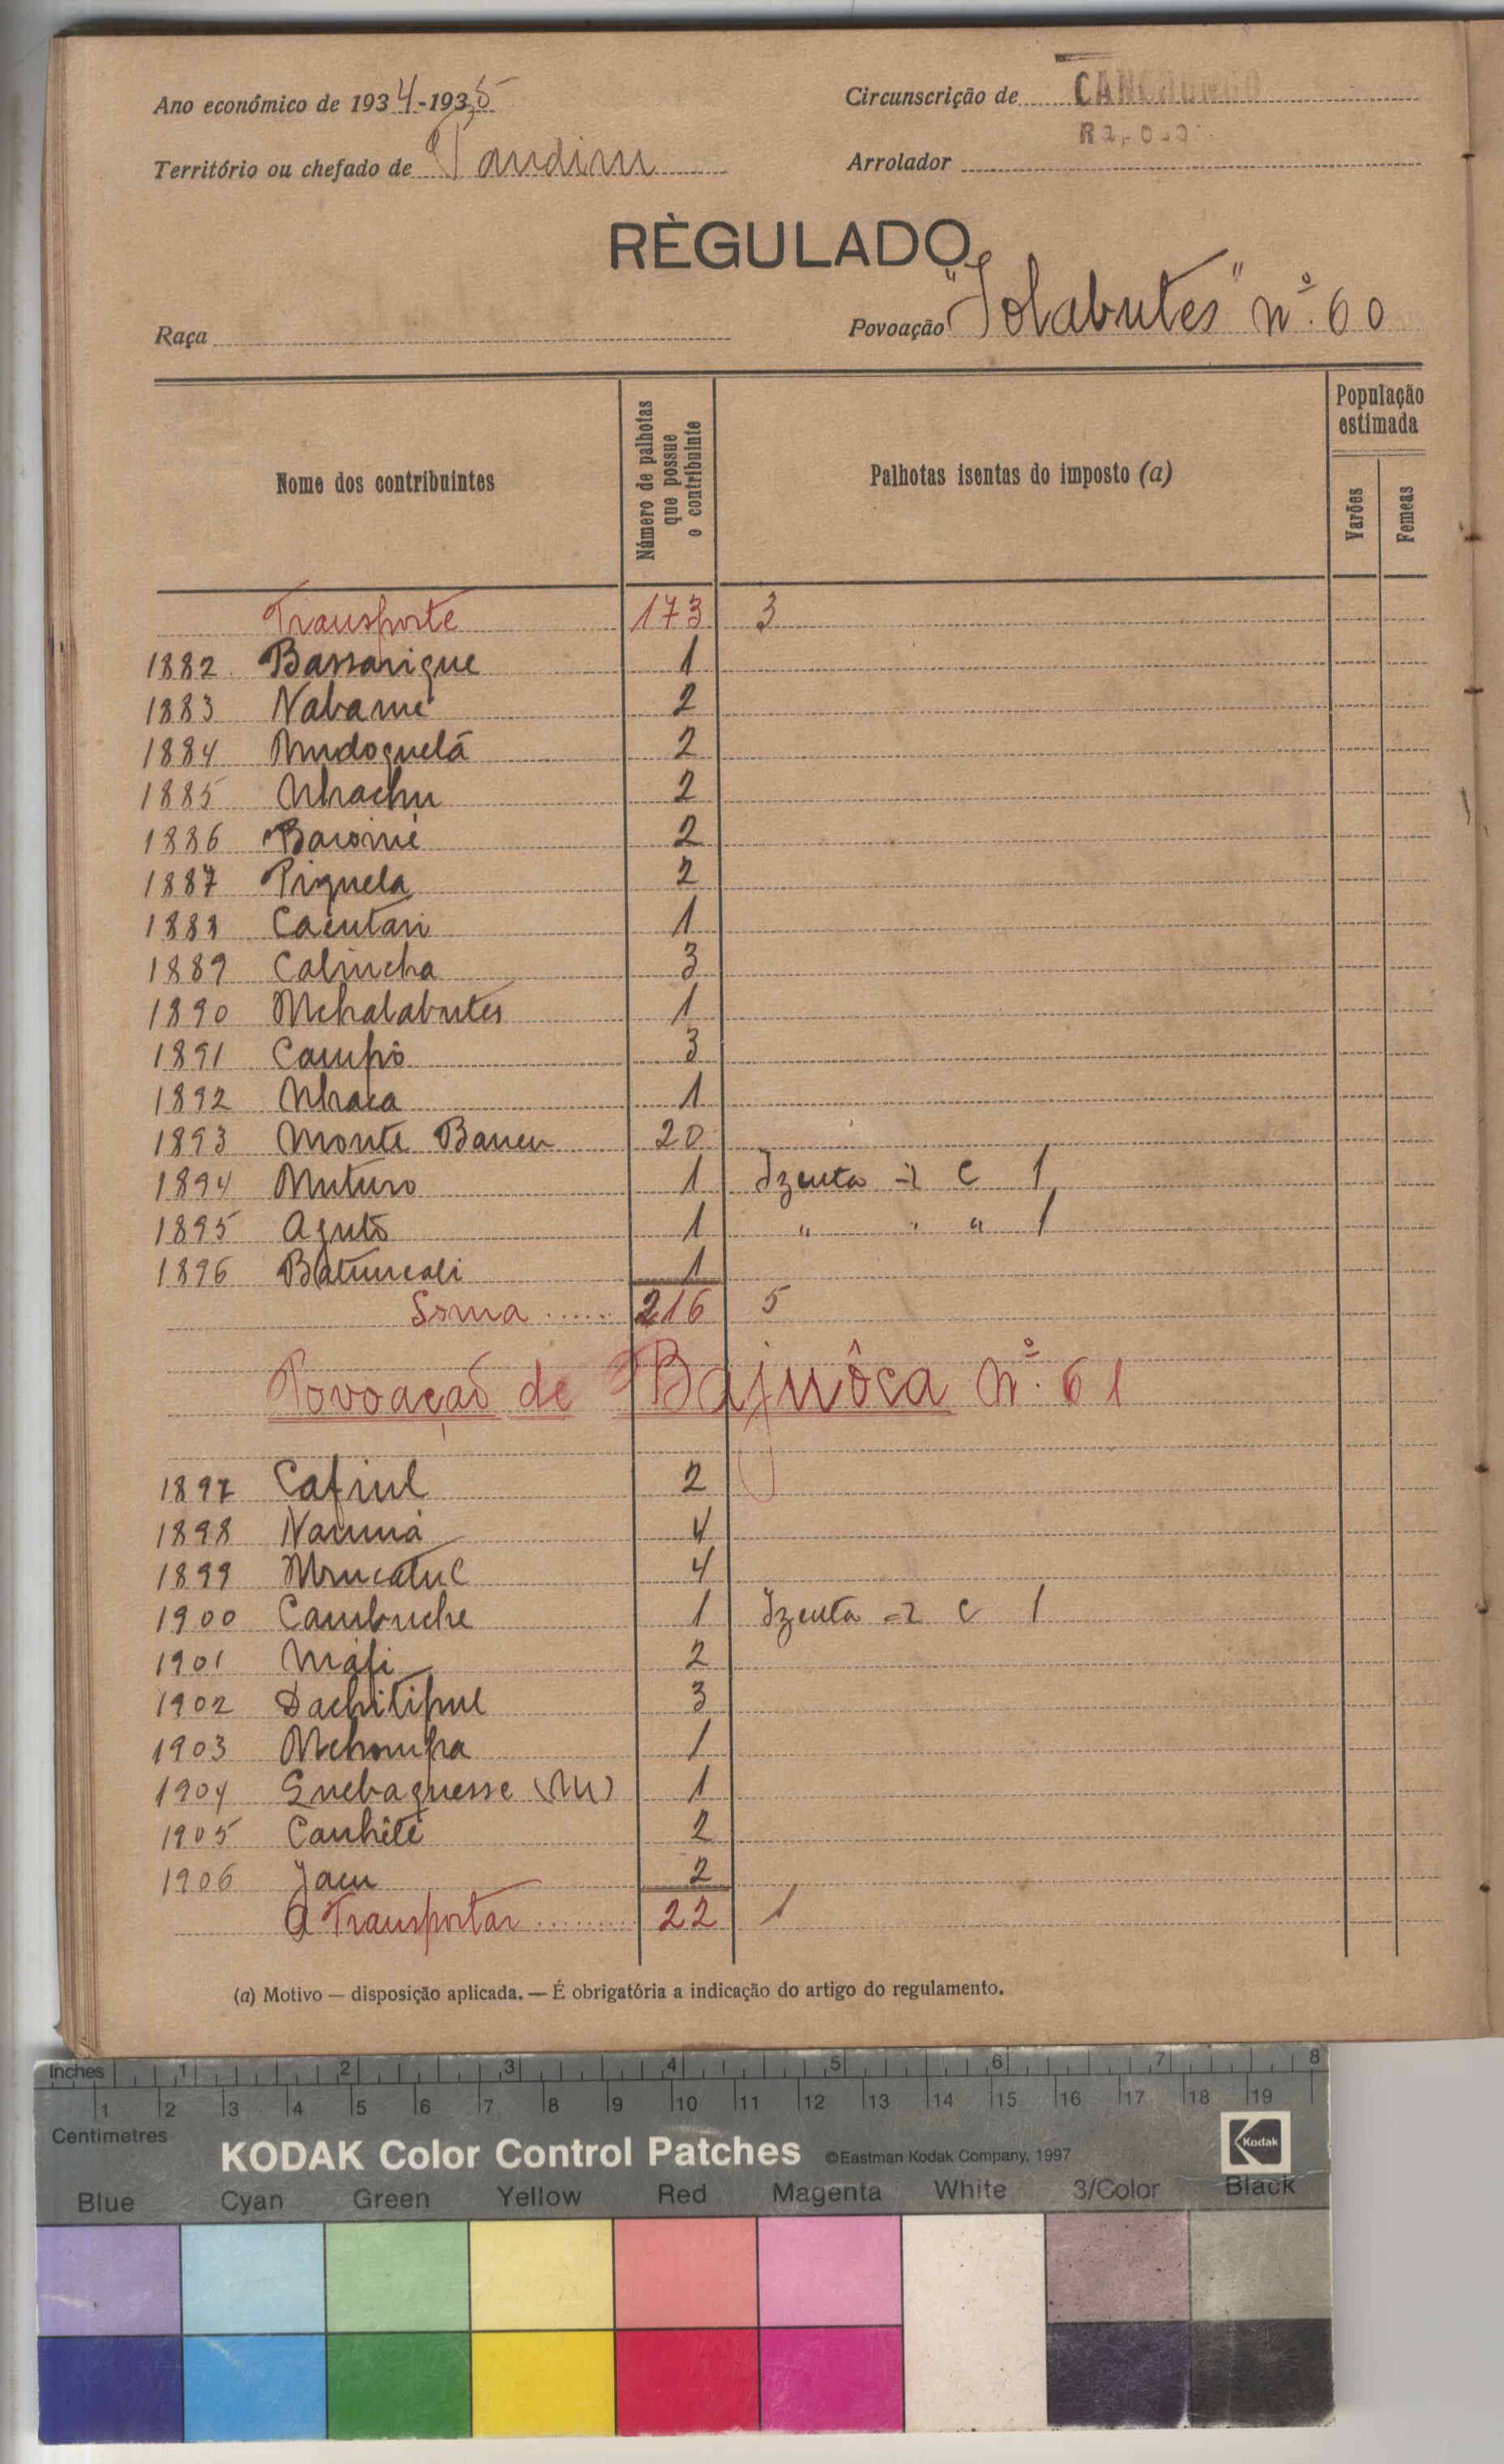 Ano económico de 1934-1935
Circunscrição de CANCHUNGO
Território ou chefado de Pandim
Arrolador
RÈGULADO
Raça
Povoação "Jolabutes" nº. 60
Nome dos contribuintes
Número de palhotas que possue o contribuinte
Palhotas isentas do imposto (a)
População estimada
Varões
Femeas
Transporte 173 3
1882 Bassarique 1
1883 Nabamé 2
1884 Mudoquelá 2
1885 Nhachu 2
1886 Baromé 2
1887 Piquela 2
1888 Caiutari 1
1889 Calincha 3
1890 Mchalabutes 1
1891 Campô 3
1892 Nhaca 1
1893 Monte Baneu 20
1894 Muturo 1 Izenta =2 C 1
1895 Agutô 1 " " " 1
1896 Batuncali 1
Soma ...... 216 5
Povoação de Bajuôca Nº. 61
1897 Cafiul 2
1898 Naumá 4
1899 Mrucatuc 4
1900 Cambuche 1 Izenta =2 C 1
1901 Máfi 2
1902 Dachitipul 3
1903 Mchompa 1
1904 Enebaquesse (M) 1
1905 Canhêté 2
1906 Jacu 2
A Transportar ......... 22 1
(a) Motivo — disposição aplicada. — É obrigatória a indicação do artigo do regulamento.
Inches 1 2 3 4 5 6 7 8
1 2 3 4 5 6 7 8 9 10 11 12 13 14 15 16 17 18 19
Centimetres
KODAK Color Control Patches ©Eastman Kodak Company, 1997 Kodak
Blue Cyan Green Yellow Red Magenta White 3/Color Black